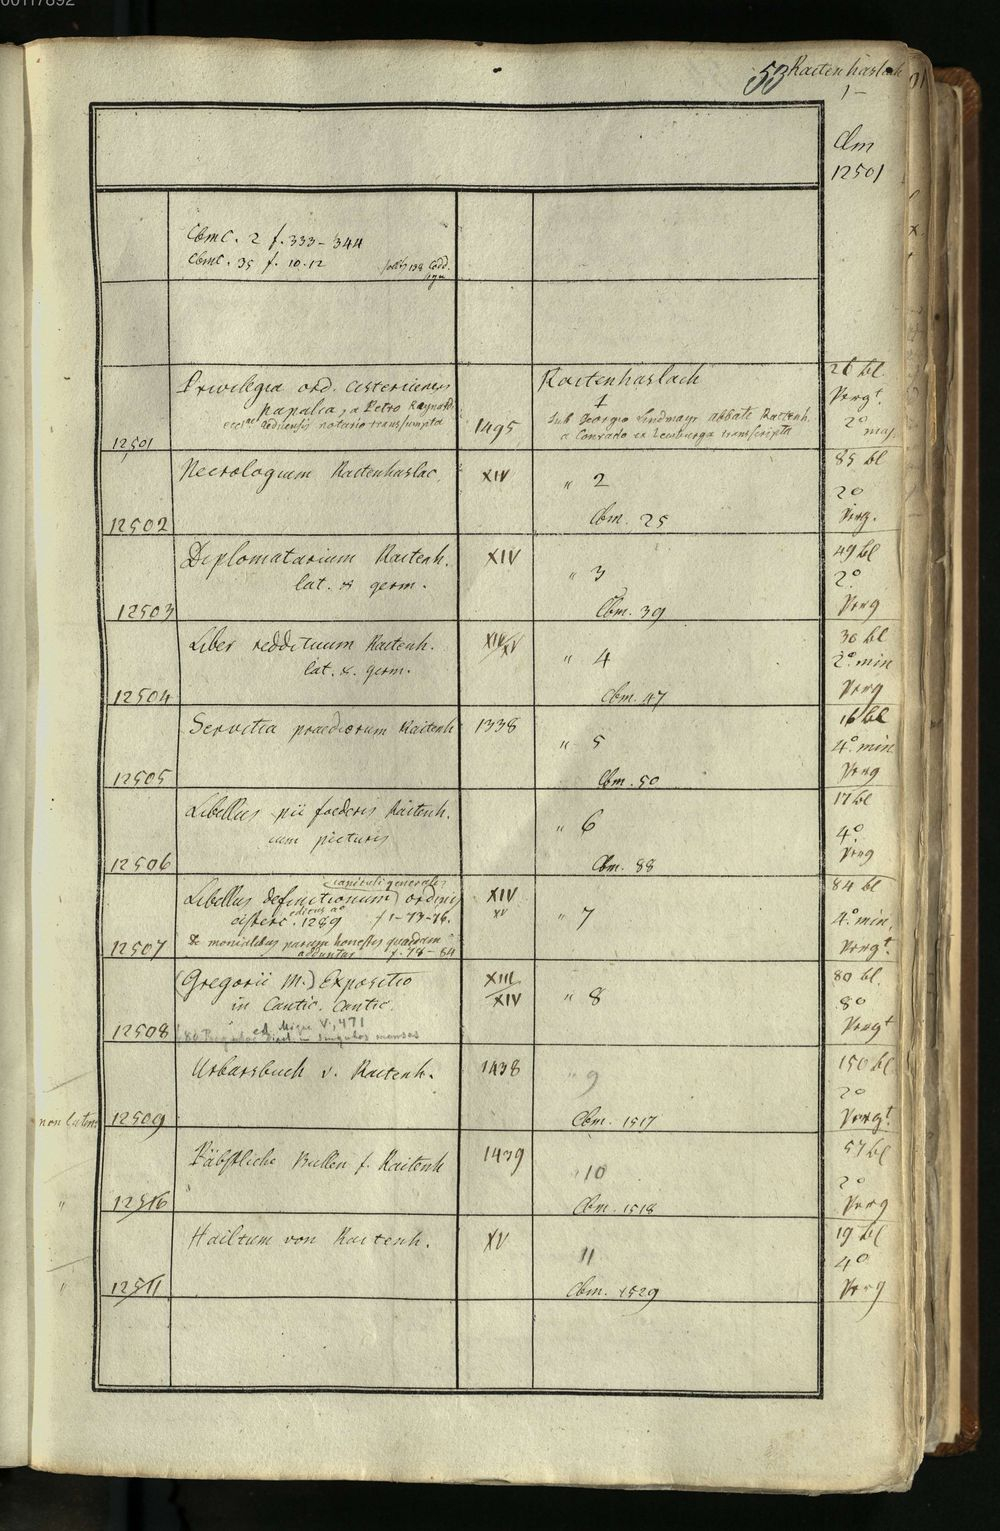 00117892
53 Raitenhaslach
1-
Clm
12501
Cbm C. 2 f. 333-344
Cbm C. 35 f. 10-12
138 Codd.
Privilegia ord. Cisterciensis
papalia, a Petro Raynardi
notario transsumpta
12501
1495
Raitenhaslach
1
Sub Georgio Lindmayr abbate Raitenh.
a Conrado transscripta
26 bl
Pergt.
2° maj.
Necrologium Raitenhaslac.
12502
XIV
" 2
Cbm. 25
85 bl
2°
Perg.
Diplomatarium Raitenh.
lat. & germ.
12503
XIV
" 3
Cbm. 39
49 bl
2°
Perg
Liber reddituum Raitenh.
lat. &. germ.
12504
XIV/XV
" 4
Cbm. 47
30 bl
2° min
Perg
Servitia praediorum Raitenh
12505
1338
" 5
Cbm. 50
16 bl
4° min
Perg
Libellus pii foederis Raitenh.
cum picturis
12506
" 6
Cbm. 88
17 bl
4°
Perg
capituli generalis
Libellus definitionum ordinis
cisterc. editus a° 1289 f 1-77-76.
& monialibus parum honestis quaedam
adduntur f. 78-84
12507
XIV
XV
" 7
84 bl
4° min.
Pergt.
(Gregorii M.) Expositio
in Cantic. Cantic.
ed. Migne V, 471
in singulos menses
12508
XIII/XIV
" 8
80 bl.
8°
Pergt
Urbarsbuch v. Raitenh.
non latin.
12509
1438
" 9
Cbm. 1517
150 bl
2°
Pergt.
Päbstliche Bullen f. Raitenh
"
12510
1439
" 10
Cbm. 1518
57 bl
2°
Perg
Hailtum von Raitenh.
"
12511
XV
11
Cbm. 1529
19 bl
4°
Perg